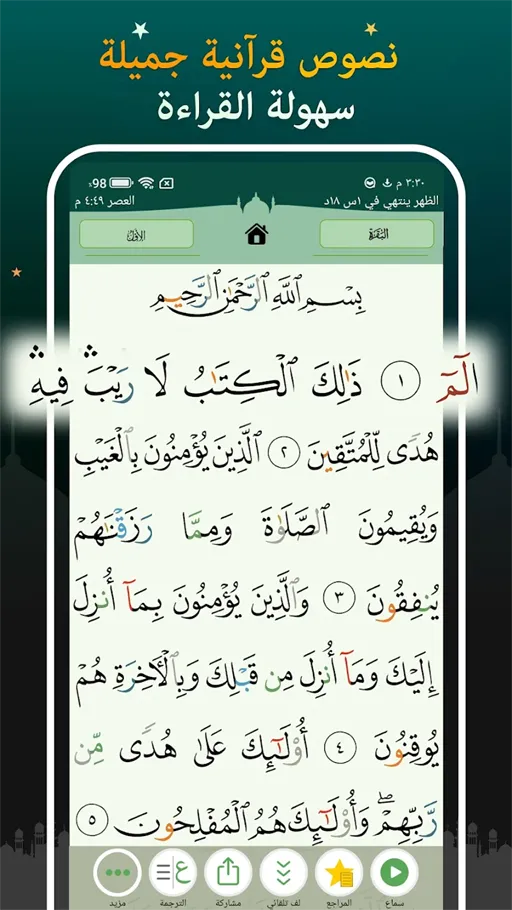 نصوص قرآنية جميلة
سهولة القراءة
٣:٣٠ م 98%
الظهر ينتهي في ١س ١٨د العصر ٤:٤٩ م
البقرة الأول
بِسْمِ ٱللَّهِ ٱلرَّحْمَٰنِ ٱلرَّحِيمِ
الٓمٓ ١ ذَٰلِكَ ٱلْكِتَٰبُ لَا رَيْبَ ۛ فِيهِ ۛ
هُدًى لِّلْمُتَّقِينَ ٢ ٱلَّذِينَ يُؤْمِنُونَ بِٱلْغَيْبِ
وَيُقِيمُونَ ٱلصَّلَوٰةَ وَمِمَّا رَزَقْنَٰهُمْ
يُنفِقُونَ ٣ وَٱلَّذِينَ يُؤْمِنُونَ بِمَآ أُنزِلَ
إِلَيْكَ وَمَآ أُنزِلَ مِن قَبْلِكَ وَبِٱلْأَخِرَةِ هُمْ
يُوقِنُونَ ٤ أُو۟لَٰٓئِكَ عَلَىٰ هُدًى مِّن
رَّبِّهِمْ ۖ وَأُو۟لَٰٓئِكَ هُمُ ٱلْمُفْلِحُونَ ٥
سماع المراجع لف تلقائي مشاركة الترجمة مزيد